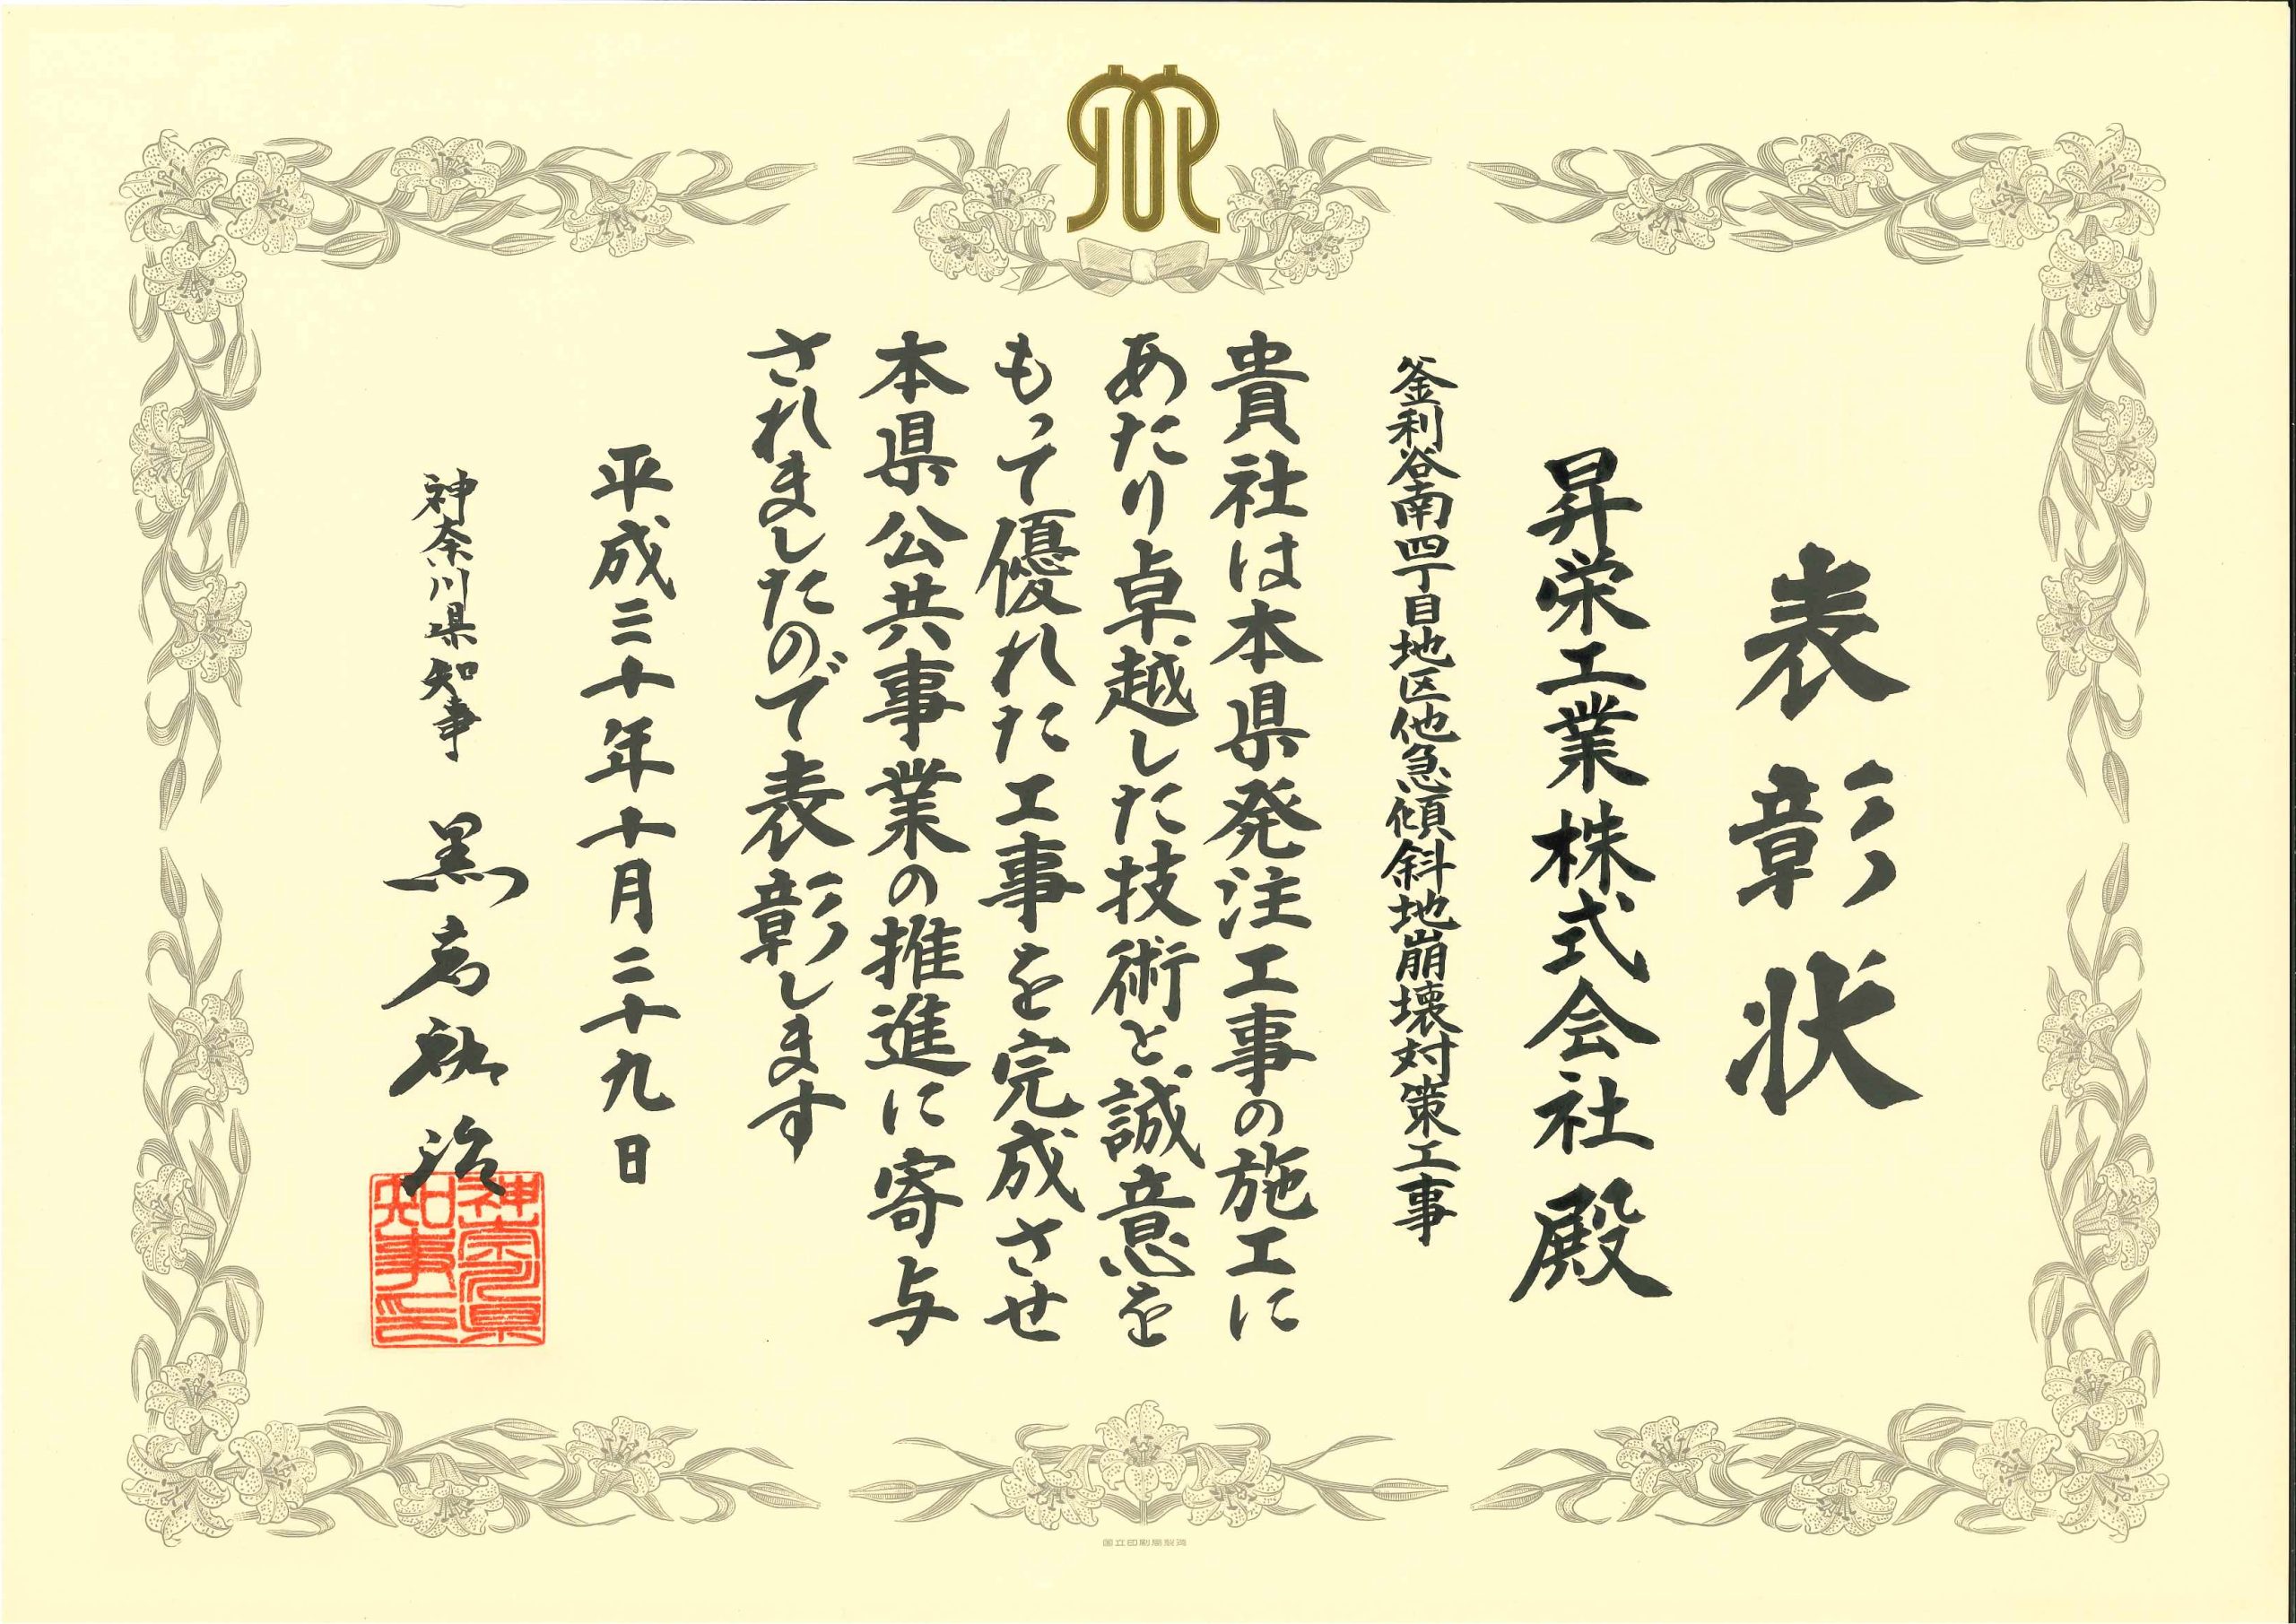 表彰状
昇栄工業株式会社 殿
釜利谷南四丁目地区他急傾斜地崩壊対策工事
貴社は本県発注工事の施工に
あたり卓越した技術と誠意を
もって優れた工事を完成させ
本県公共事業の推進に寄与
されましたので表彰します
平成三十年十月二十九日
神奈川県知事 黒岩祐治
神奈川県
知事印
国立印刷局製造